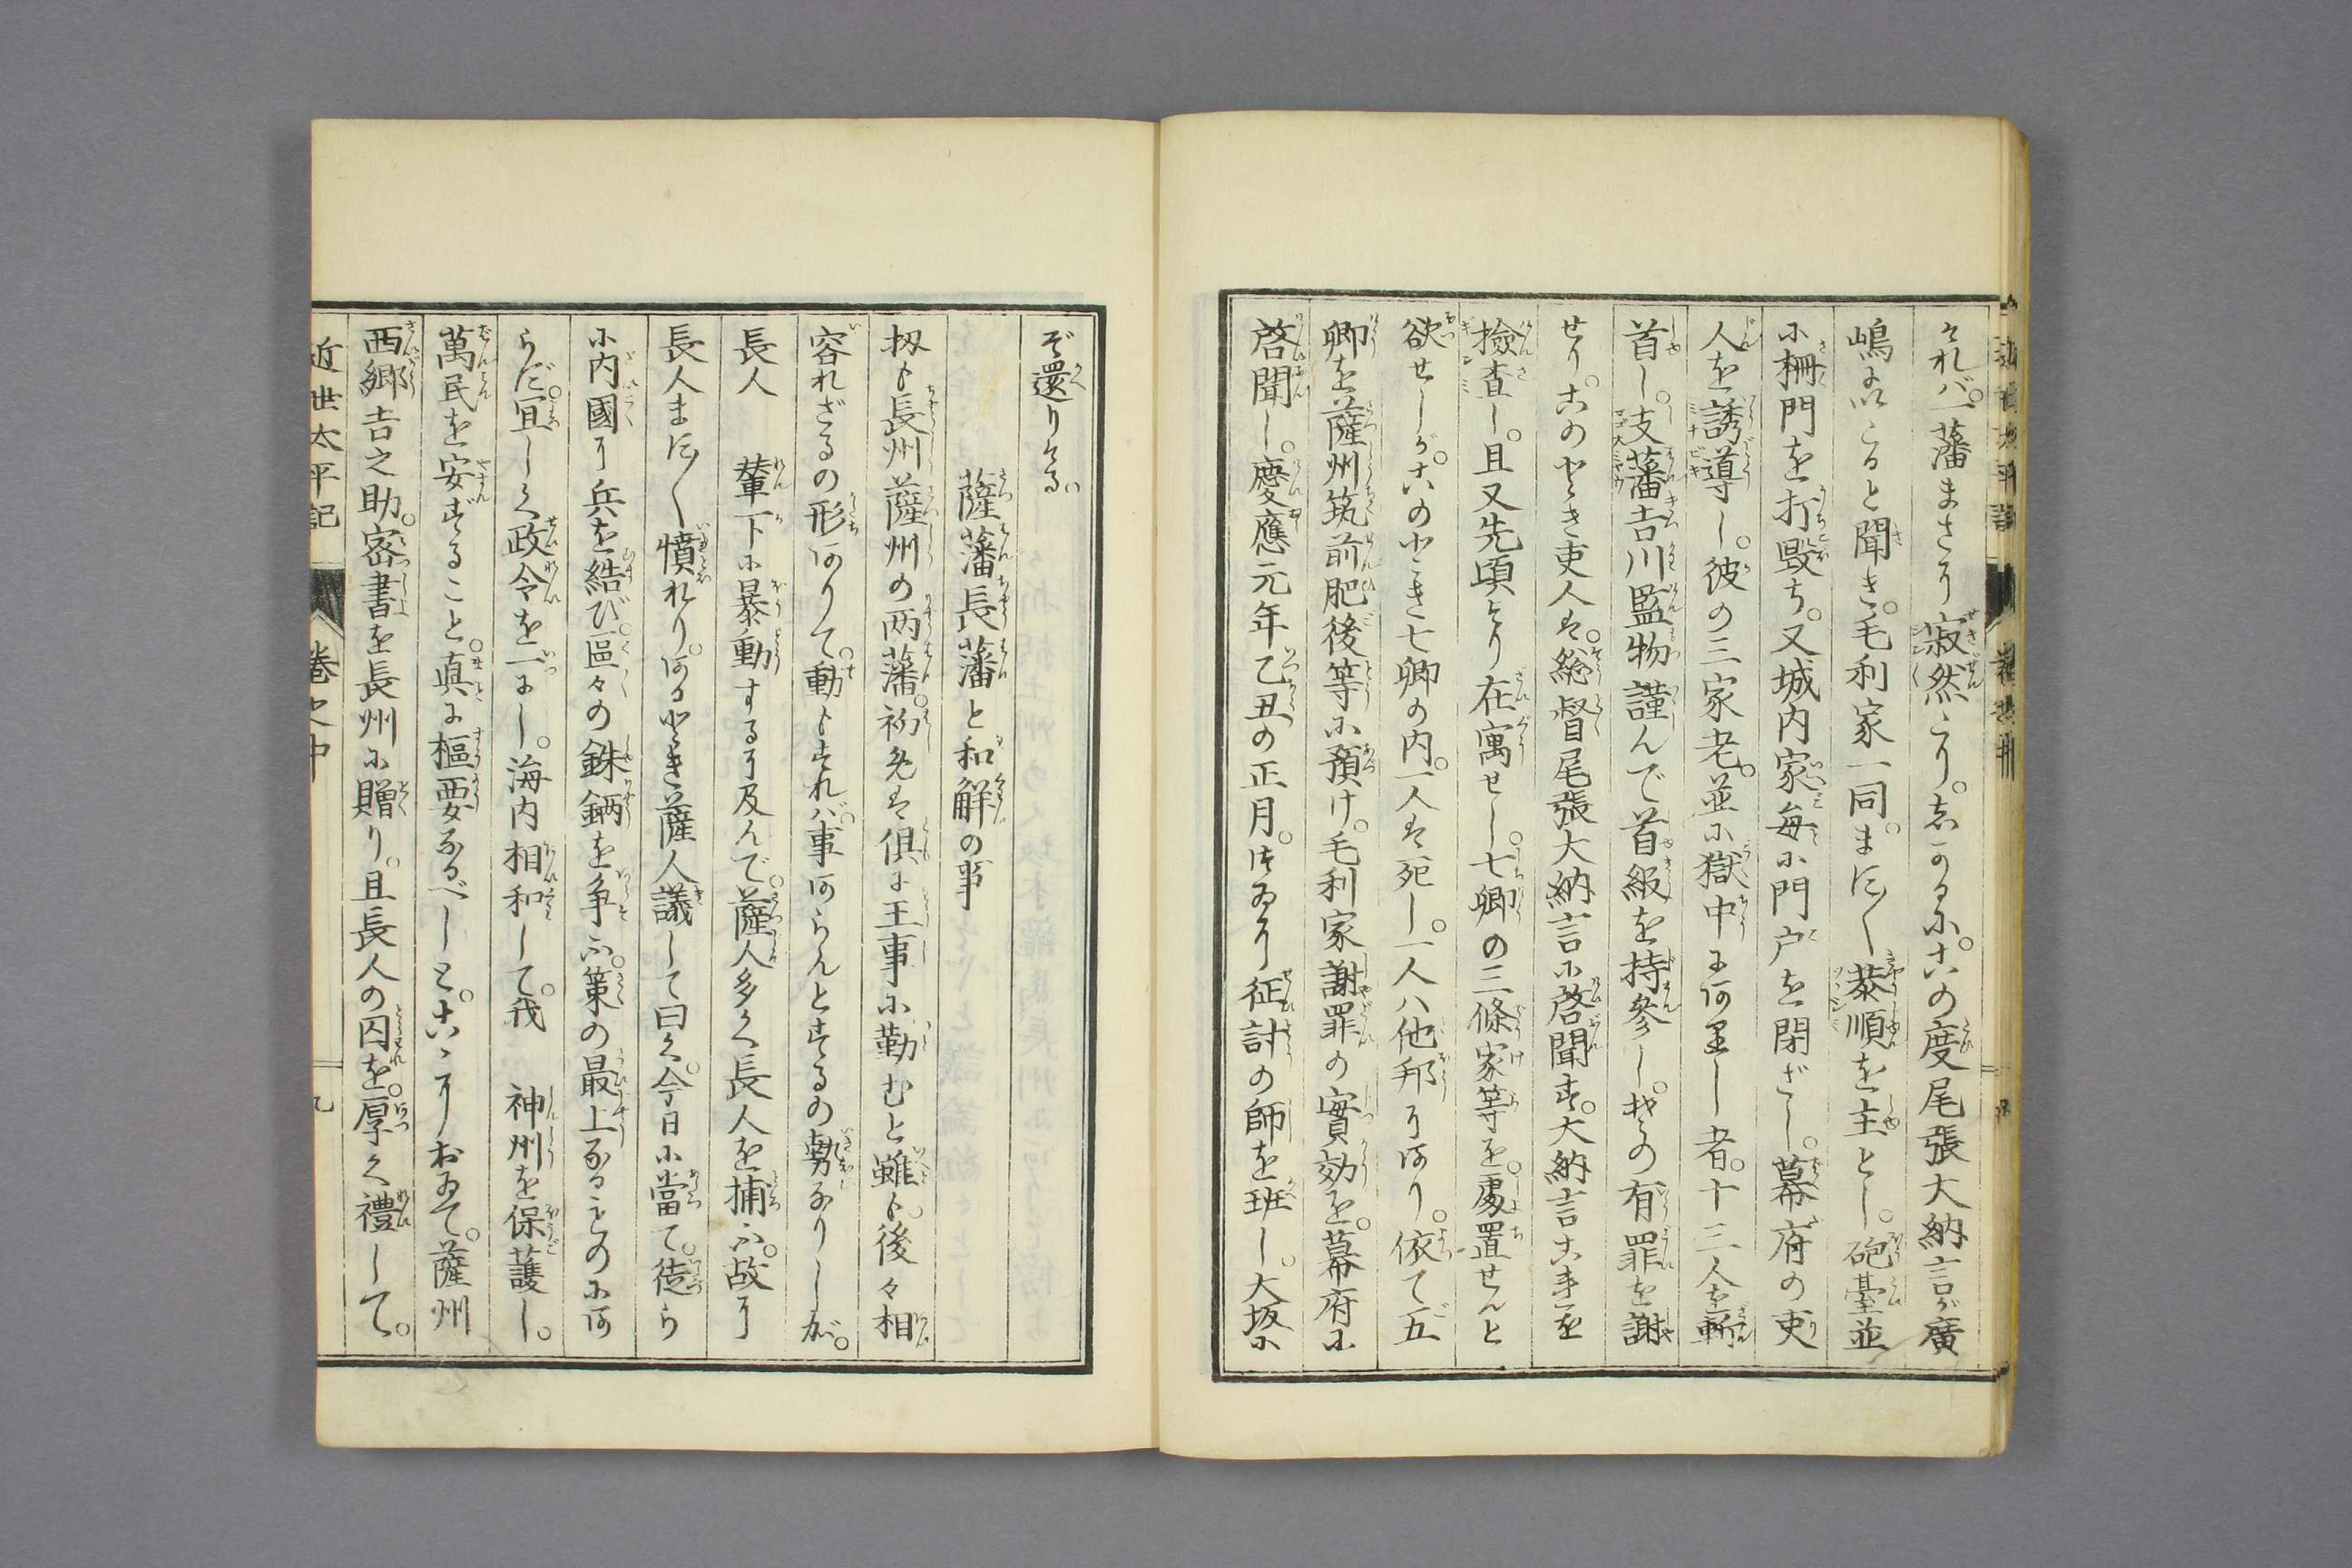 それバ。一藩まさに寂然たり。しかるに。この度尾張大納言が廣
嶋に來ると聞き。毛利家一同。ます〳〵恭順を主とし。砲臺並
に柵門を打毀ち。又城内家毎に門戸を閉ざし。幕府の吏
人を誘導し。彼の三家老。並に獄中にありし者。十三人を斬
首し。支藩吉川監物謹んで首級を持參し。その有罪を謝
せり。このとき吏人は。総督尾張大納言に啓聞す。大納言これを
撿査し。且又先頃より在寓せし。七卿の三條家等を。處置せんと
欲せしが。このとき七卿の内。一人は死し。一人ハ他邦にあり。依て五
卿を薩州筑前肥後等に預け。毛利家謝罪の實効を。幕府に
啓聞し。慶應元年乙丑の正月。つゐに征討の師を班し。大坂に
ぞ還りける
薩藩長藩と和解の事
扨も長州薩州の両藩。初めは倶に王事に勤むと雖も。後々相
容れざるの形ありて。動もすれバ。事あらんとするの勢なりしが。
長人　輦下に暴動するに及んで。薩人多く長人を捕ふ。故に
長人ます〳〵憤れり。あるとき薩人議して曰く。今日に當て。徒ら
に内國に兵を結び。區々の銖鎺を争ふ。策の最上なるものにあ
らず。宜しく政令を一にし。海内相和して。我　神州を保護し。
萬民を安ずること。真に樞要なるべしと。こゝにおゐて。薩州
西郷吉之助。密書を長州に贈り。且長人の囚を。厚く禮して。
近世太平記　卷之中　九